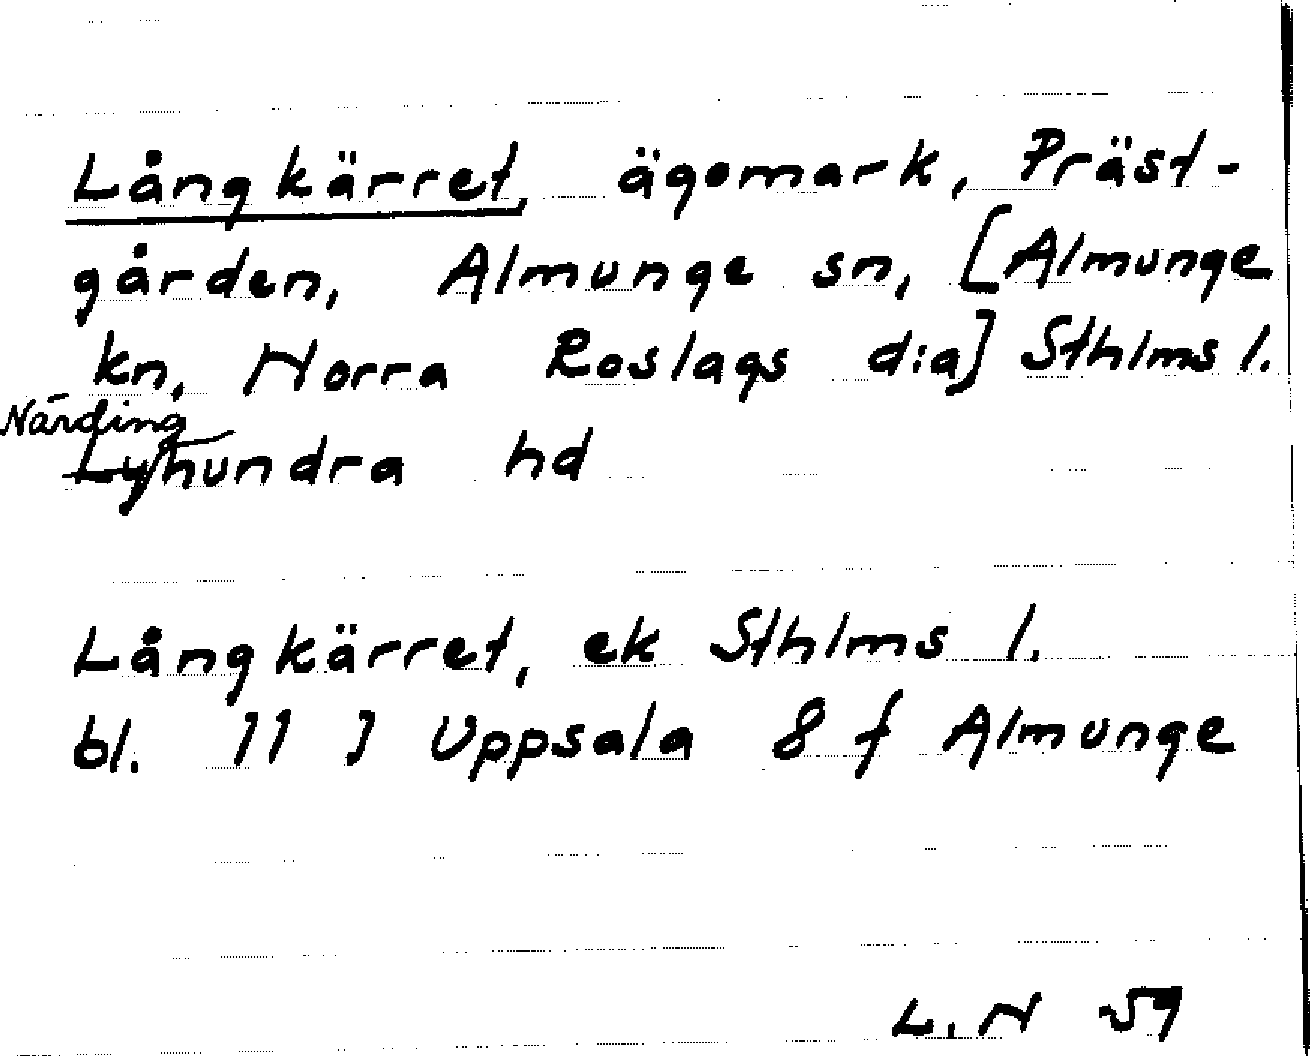 Långkärret, ägomark, Präst-
gården, Almunge sn, [Almunge
kn, Norra Roslags d:a] Sthlms l.
Närding
Lyhundra hd
Långkärret, ek Sthlms l.
bl. 11 J Uppsala 8 f Almunge
L. N 59